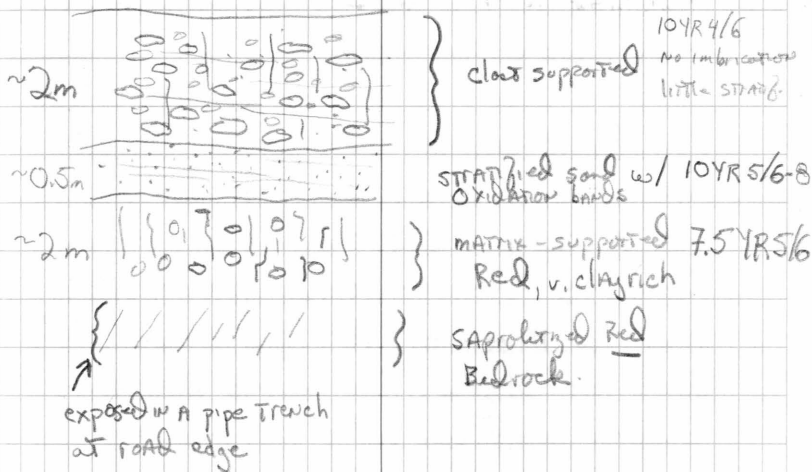 ~2m
clast supported
10YR 4/6
No imbrication
little STRATIF.
~0.5m
STRATIFIED sand w/ 10YR 5/6-8
OXIDATION bands
~2m
MATRIX-supported 7.5YR 5/6
Red, v. clayrich
SAprolitized Red
Bedrock.
exposed IN A pipe TRENCH
at ROAD edge